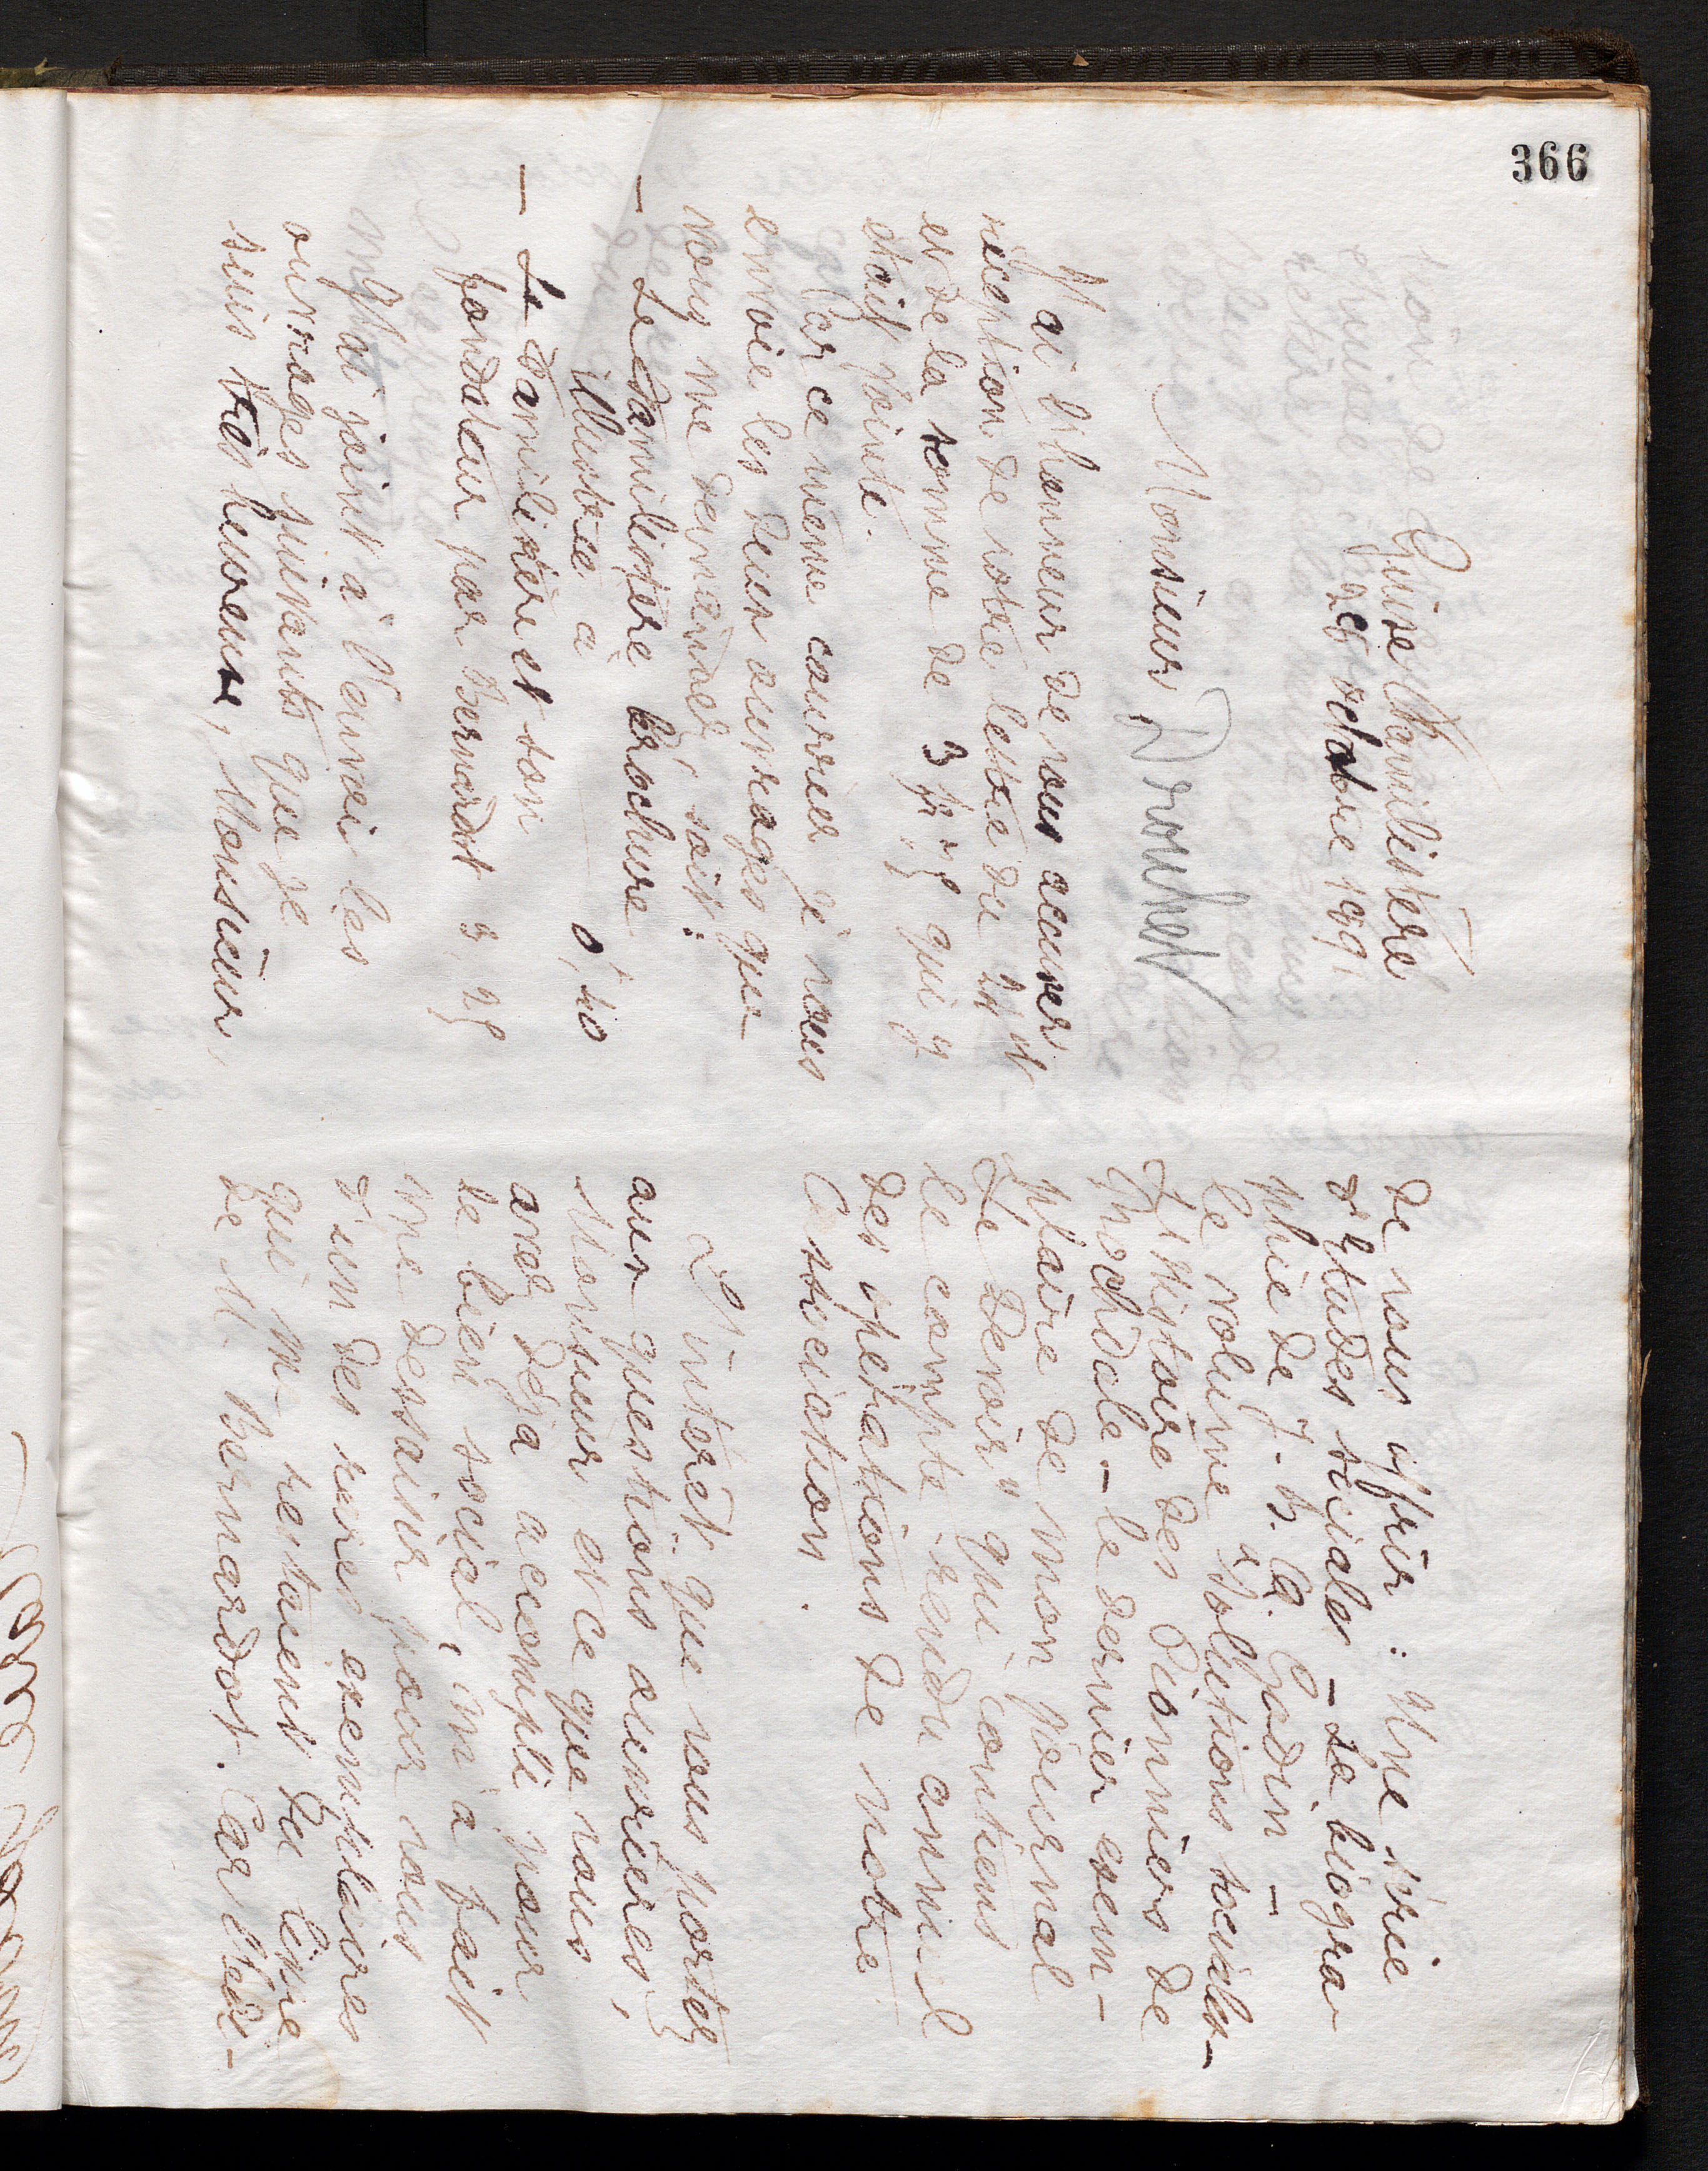 366
Guise Familistère
26 octobre 1891
Monsieur Drouhet
J'ai l'honneur de vous accuser
réception de votre lettre du 24 et
et de la somme de 3 fr, 75 qui y
était jointe.
Par ce même courrier je vous
envoie les deux ouvrages que
vous me demandez, soit:
– Le Familistère brochure
illustrée à 0,f 40
– Le Familistère et son
fondateur par Bernardot 3, 25
J'ai joint à l'envoi les
ouvrages suivants que je
suis très heureuse, Monsieur,
de vous offrir : Une série
d'Etudes sociales – La biogra
phie de J. B. A. Godin –
le volume "Solutions sociales –
L'histoire des Pionniers de
Rochdale – le dernier exem-
plaire de mon journal
"Le Devoir" qui contient
le compte-rendu annuel
des opérations de notre
Association.
L'intérêt que vous portez
aux questions ouvrières,
Monsieur, et ce que vous
avez déjà accompli pour
le bien social, m'a fait
me dessaisir pour vous
d'un des rares exemplaires
qui me restaient du livre
de M. Bernardot. Car l'édi-